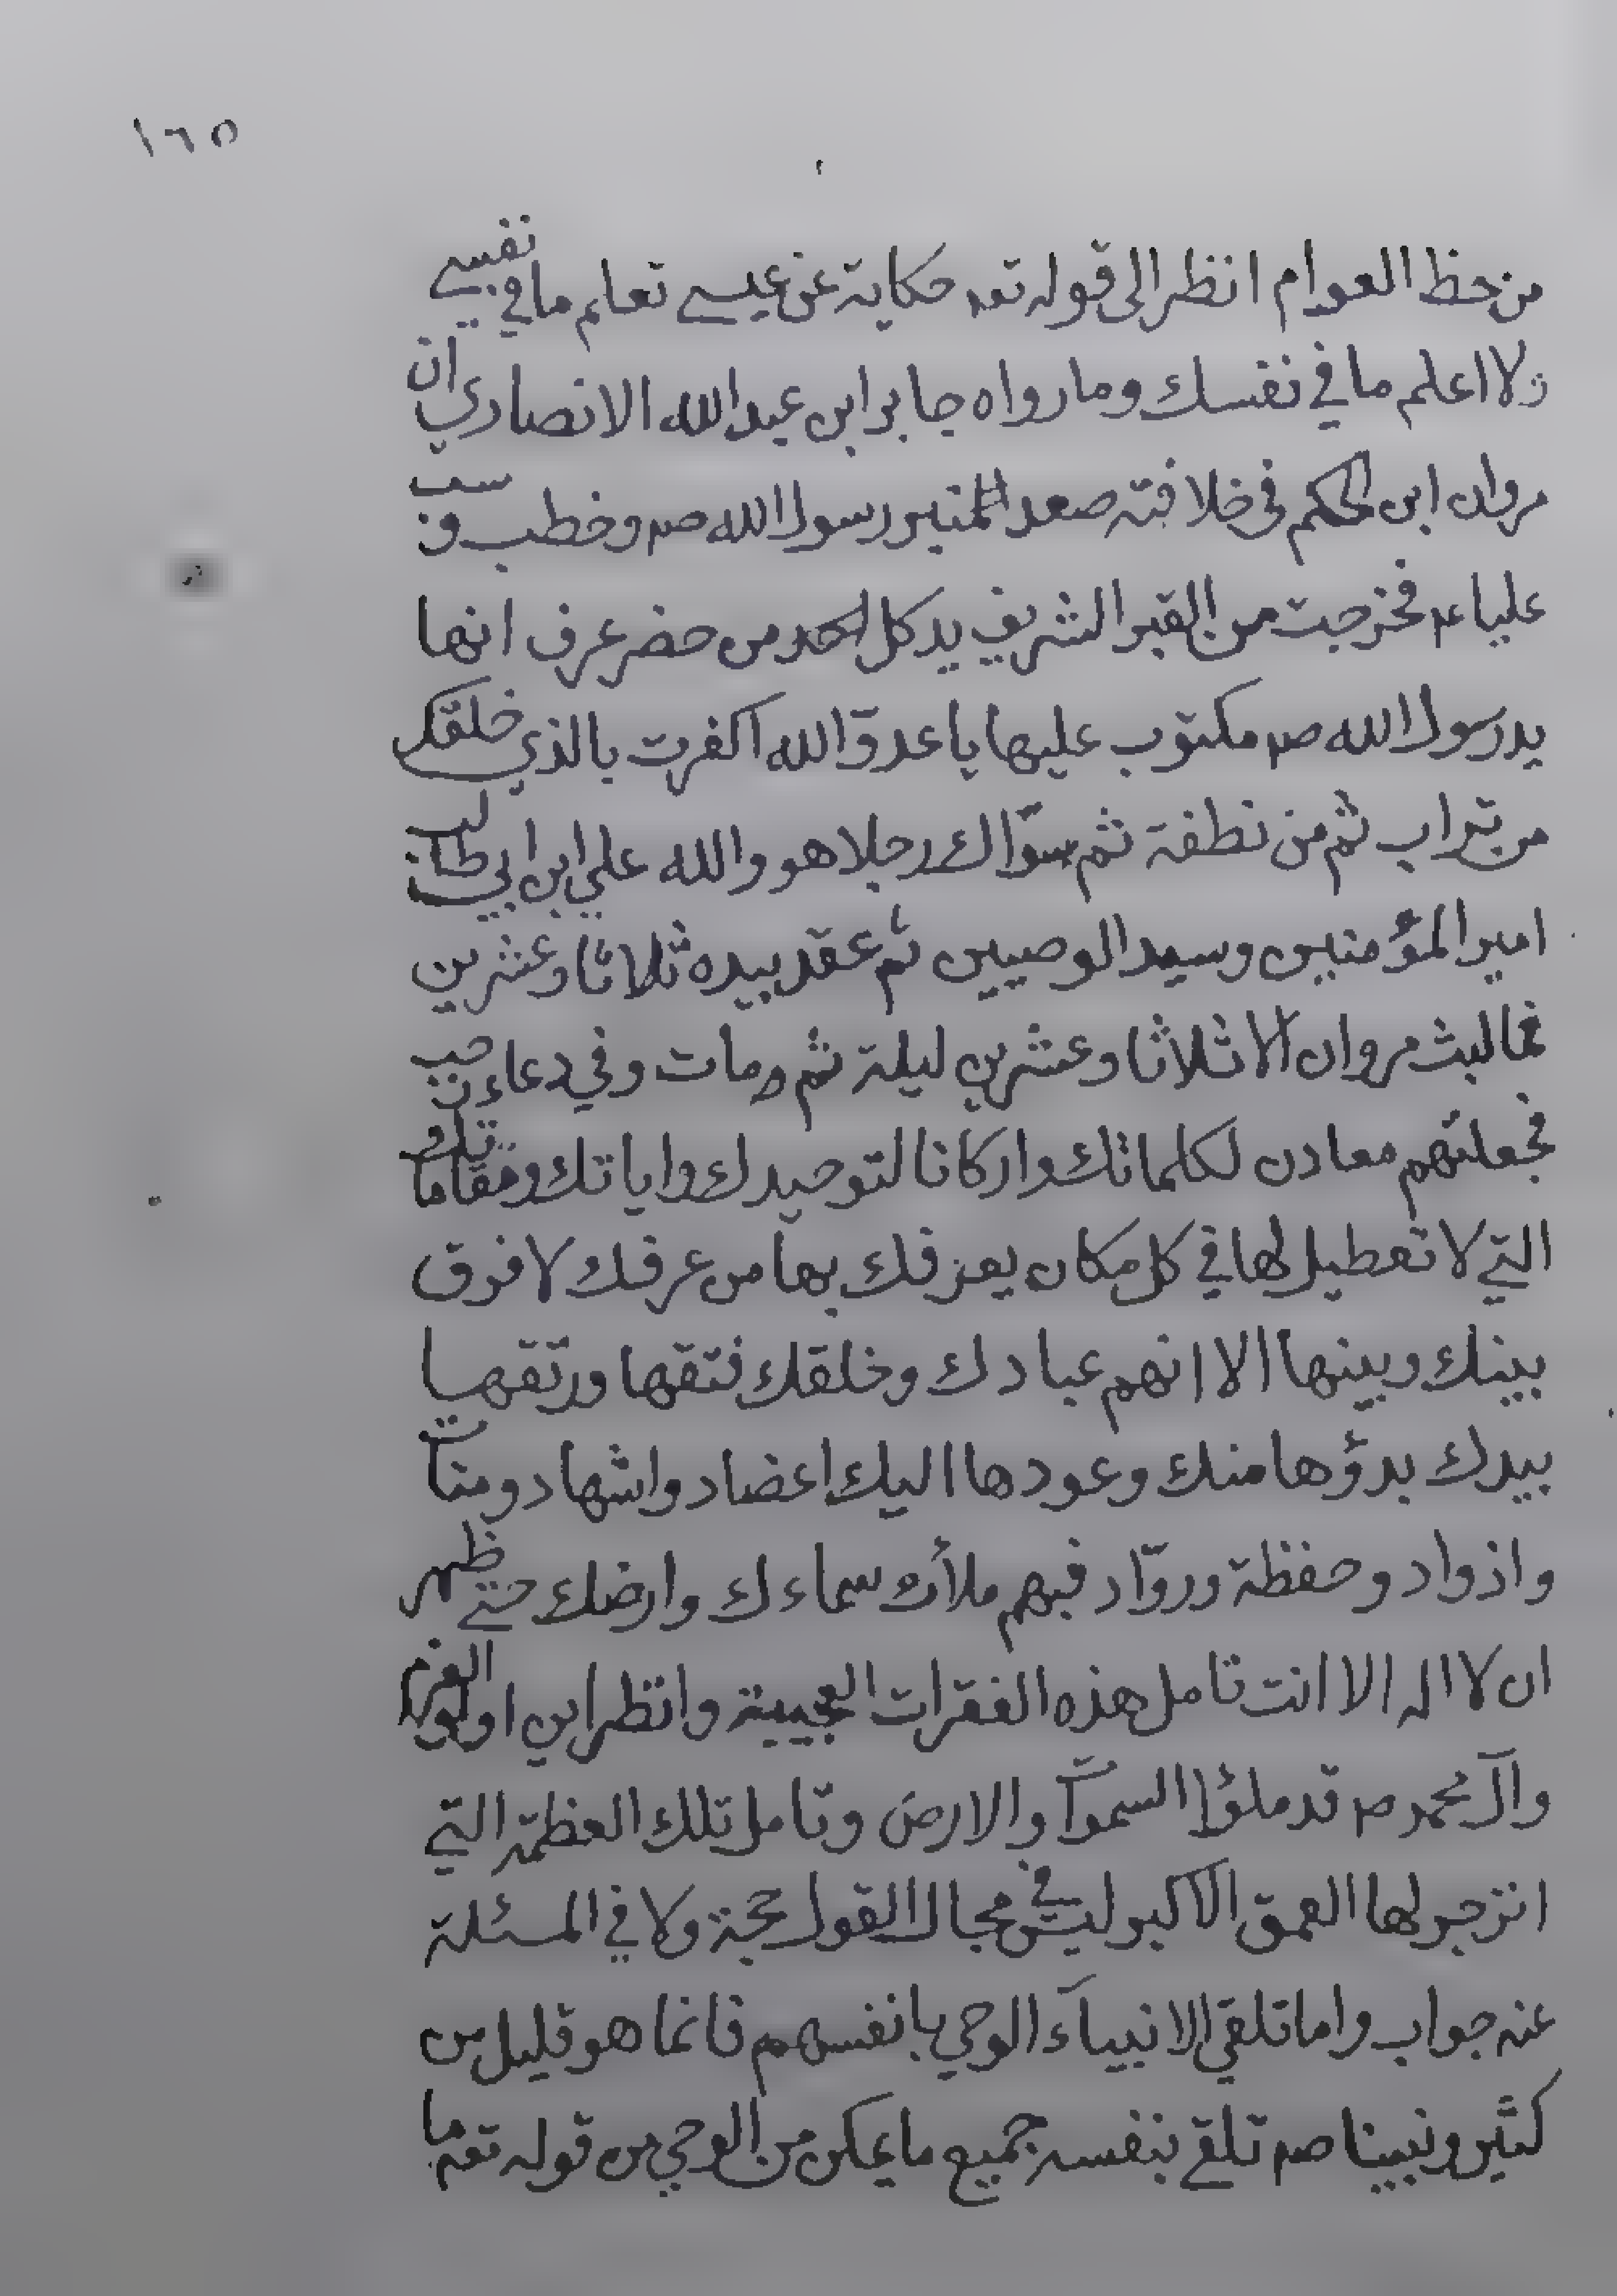 ١٦٥
من حظ العوام انظر الى قوله تعه حكاية عن عيسى تعلم ما في نفسي
ولا اعلم ما في نفسك وما رواه جابر ابن عبد الله الانصاري ان
مروان ابن الحكم في خلافته صعد المنبر رسول الله صم وخطب و سب
عليا عم فخرجت من القبر الشريف يد كل احد من حضر عرف انها
يد رسول الله صم مكتوب عليها يا عدوّ الله اكفرت بالذي خلقك
من تراب ثم من نطفة ثم سوّاك رجلا هو والله علي ابن ابي طالب
امير المؤمنين وسيد الوصيين ثم عقد بيده ثلاثا وعشرين
فما لبث مروان الا ثلاثا وعشرين ليلة ثم مات وفي دعاء رجب
فجعلتهم معادن لكلماتك واركانا لتوحيدك واياتك ومقاماتك
التي لا تعطيل لها في كل مكان يعرفك بها من عرفك لا فرق
بينك وبينها الا انهم عبادك وخلقك فتقها ورتقها
بيدك بدؤها منك وعودها اليك اعضاد واشهاد ومناة
واذواد وحفظة وروّاد فبهم ملأت سماءك وارضك حتى ظهر
ان لا اله الا انت تامل هذه الفقرات العجيبة وانظر اين اولو العزم
وآل محمد صم قد ملؤا السموآت والارض وتامل تلك العظمة التي
انزجر لها العمق الاكبر ليس في مجال القول حجة ولا في المسئلة
عنه جواب واما تلقي الانبيآء الوحي بانفسهم فانما هو قليل من
كثير ونبينا صم تلقى بنفسه جميع ما يمكن من الوحي من قوله تعه ما